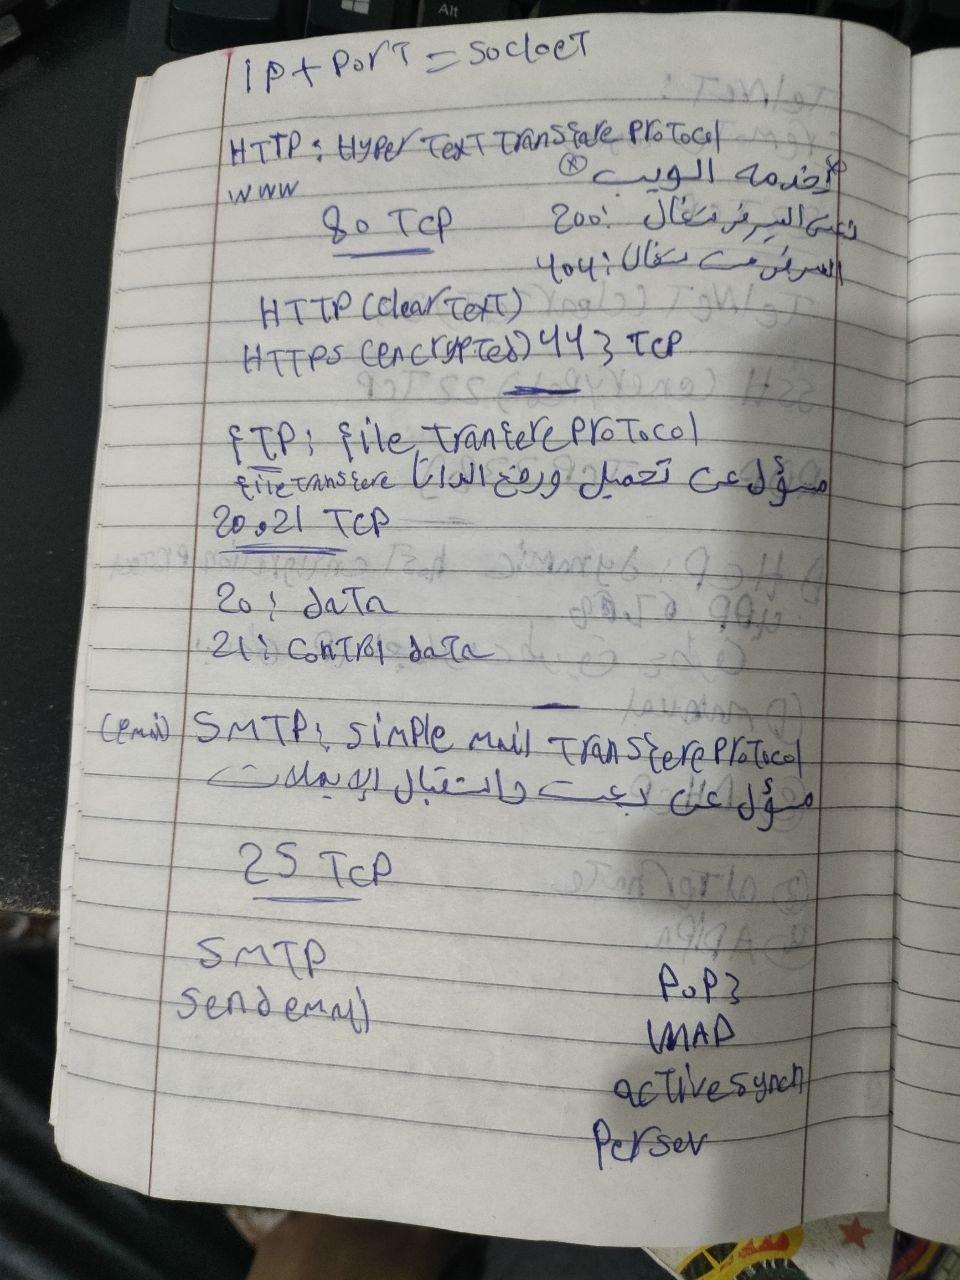 IP + PorT = SockeT
HTTP : HyperText Transfere ProTocol
www
خدمه الويب
80 TCP
200: السيرفر شغال
404: السيرفر مش شغال
HTTP (clear Text)
HTTPS (encrypted) 443 TCP
FTP: file Transfere ProTocol
file transfere مسؤل عن تحميل ورفع الداتا
20,21 TCP
20: daTa
21: conTRol daTa
(Email) SMTP: simple mail Transfere ProTocol
مسؤل عن بعت واستقبال الإيميلات
25 TCP
SMTP
Send email
POP3
IMAP
active synch